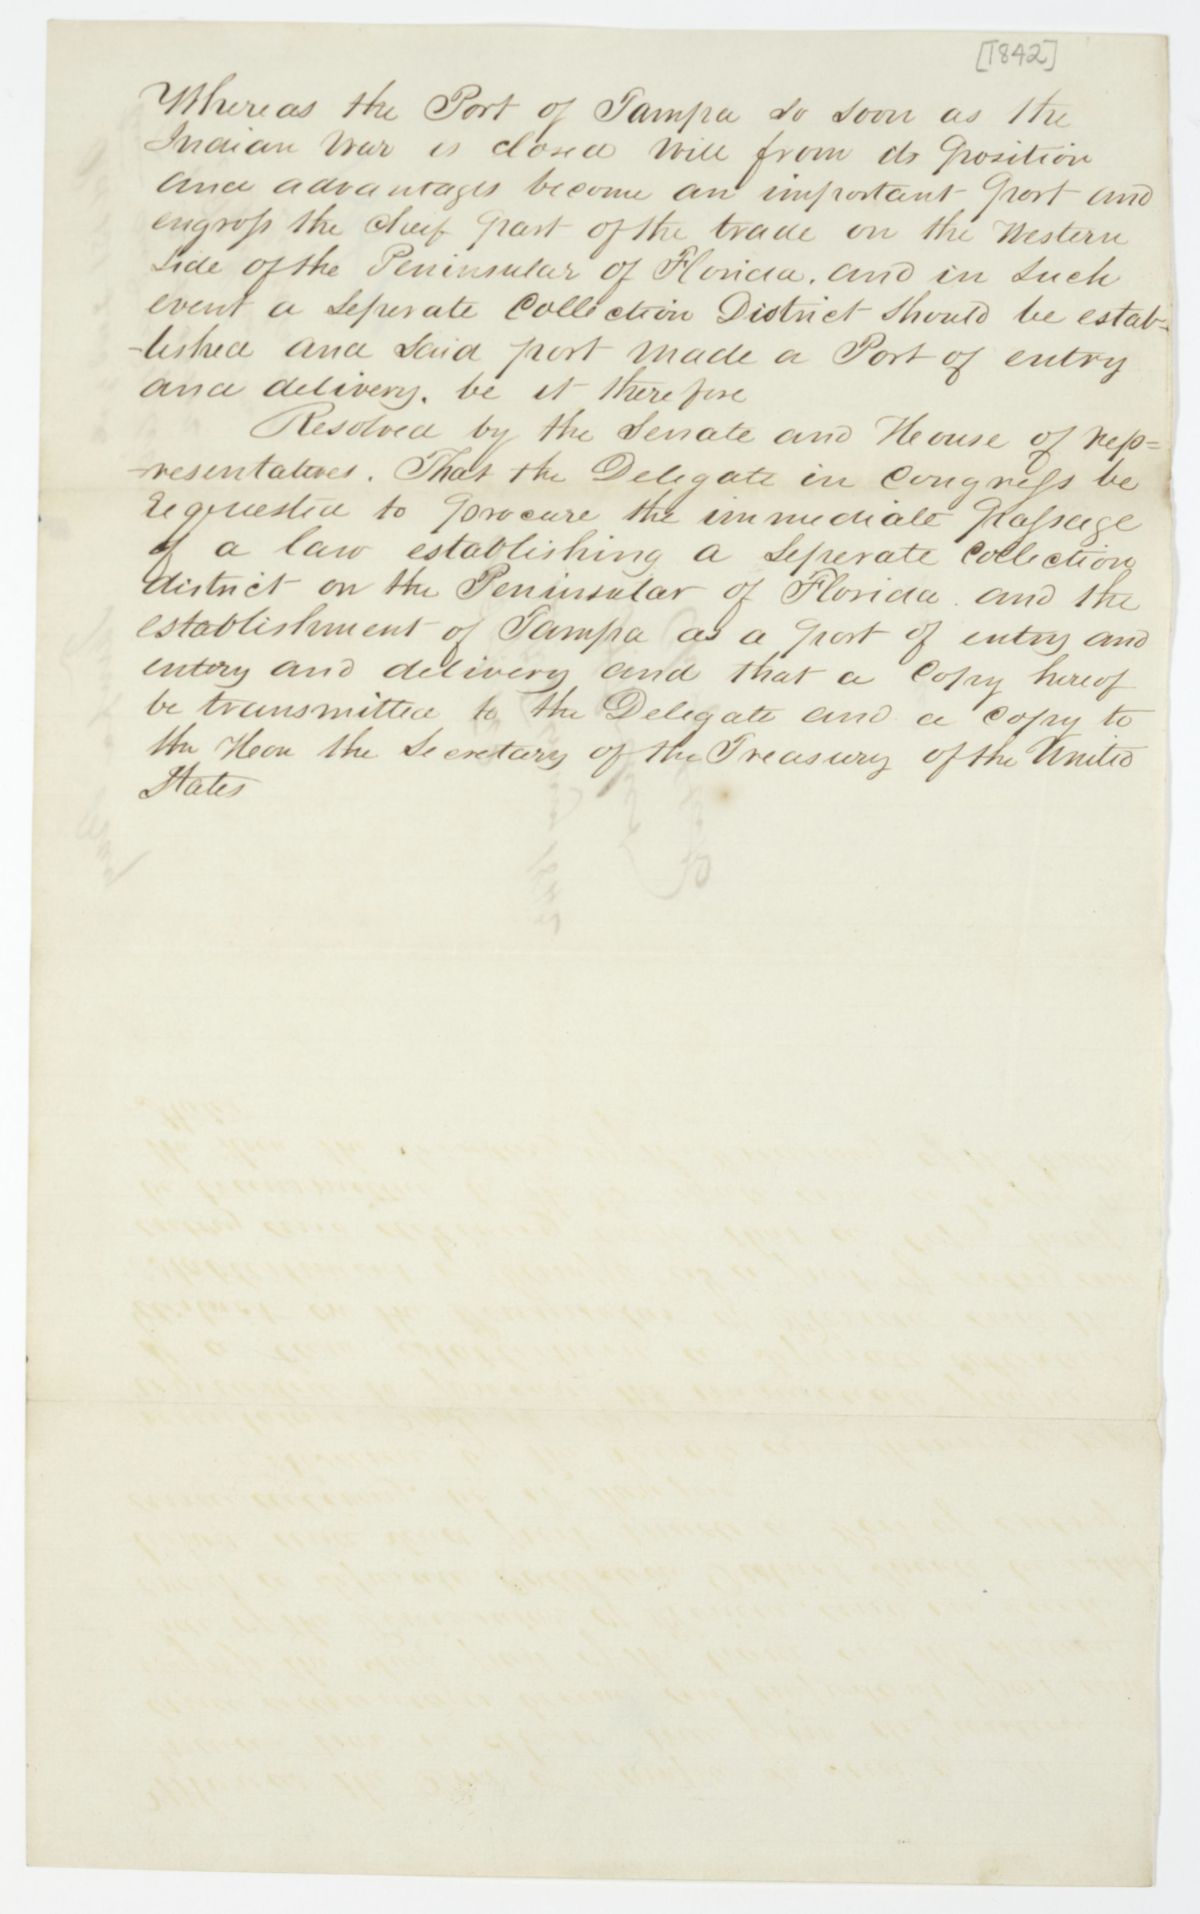 [1842]
Whereas the Port of Tampa so soon as the
Indian War is closed will from its position
and advantages become an important port and
engross the cheif part of the trade on the Western
side of the Peninsular of Florida. and in such
event a seperate Collection District should be estab-
-lished and said port made a Port of entry
and delivery. be it therefore
Resolved by the Senate and House of rep=
-resentatives. That the Delegate in Congress be
requested to procure the immediate passage
of a law establishing a seperate collection
district on the Peninsular of Florida. and the
establishment of Tampa as a port of entry and
entery and delivery and that a Copy hereof
be transmitted to the Delegate and a copy to
the Hon the Secretary of the Treasury of the United
States